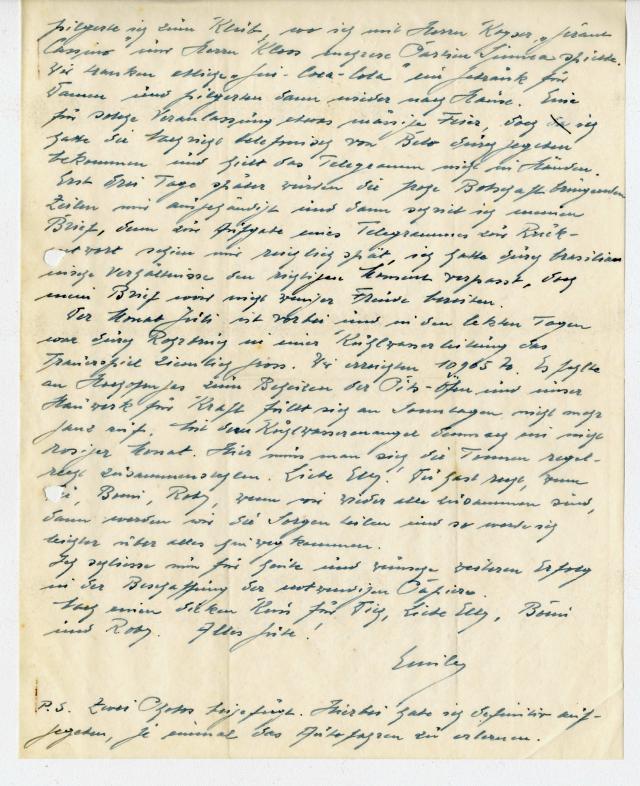 pilgerte ich zum Klub, wo ich mit Herrn Kayser, "
Cassino" und Herrn Kloos mehrere Partien spielte.
Wir tranken etliche „Gin-Coca-Cola" ein Getränk für
Damen und pilgerten dann wieder nach Hause. Eine
für solche Veranlassung etwas mässige Feier, doch ich
hatte die Nachricht telefonisch von Belo durchgegeben
bekommen und hielt das Telegramm nicht in Händen.
Erst drei Tage später wurden die frohe Botschaft bringenden
Zeilen mir ausgehändigt und dann schrieb ich meinen
Brief, denn zur Aufgabe eines Telegrammes zur Rück-
antwort schien mir reichlich spät, ich hatte durch brasilian
nische Verhältnisse den richtigen Moment verpasst, doch
mein Brief wird nicht weniger Freude bereiten.
Der Monat Juli ist vorbei und in den letzten Tagen
war durch Rohrbruch in einer Kühlwasserleitung das
Trauerspiel ziemlich gross. Wir erreichten 10965 To. Es fehlte
an Hochofengas zum Beheizen der Pits-Öfen und unser
Hauwerk für Kraft füllt sich an Sonntagen nicht mehr
ganz auf. Mit dem Kühlwassermangel demnach ein nicht
rosiger Monat. Hier muss man sich die Tonnen regel-
recht zusammenstoplen. Liebe Elly! Du hast recht, wenn
Du, Bumi, Roby, wenn wir wieder alle beisammen sind,
dann werden wir die Sorgen teilen und so werde ich
leichter über alles hinwegkommen.
Ich schliesse nun für heute und wünsche weiteren Erfolg
in der Beschaffung der notwendigen Papiere.
Noch einen dicken Kuss für Dich, Liebe Elly, Bumi
und Roby. Alles Gute!
Emily
P.S. Zwei Photos beigefügt. Hierbei habe ich definitiv auf-
gegeben, je einmal das Autofahren zu erlernen.